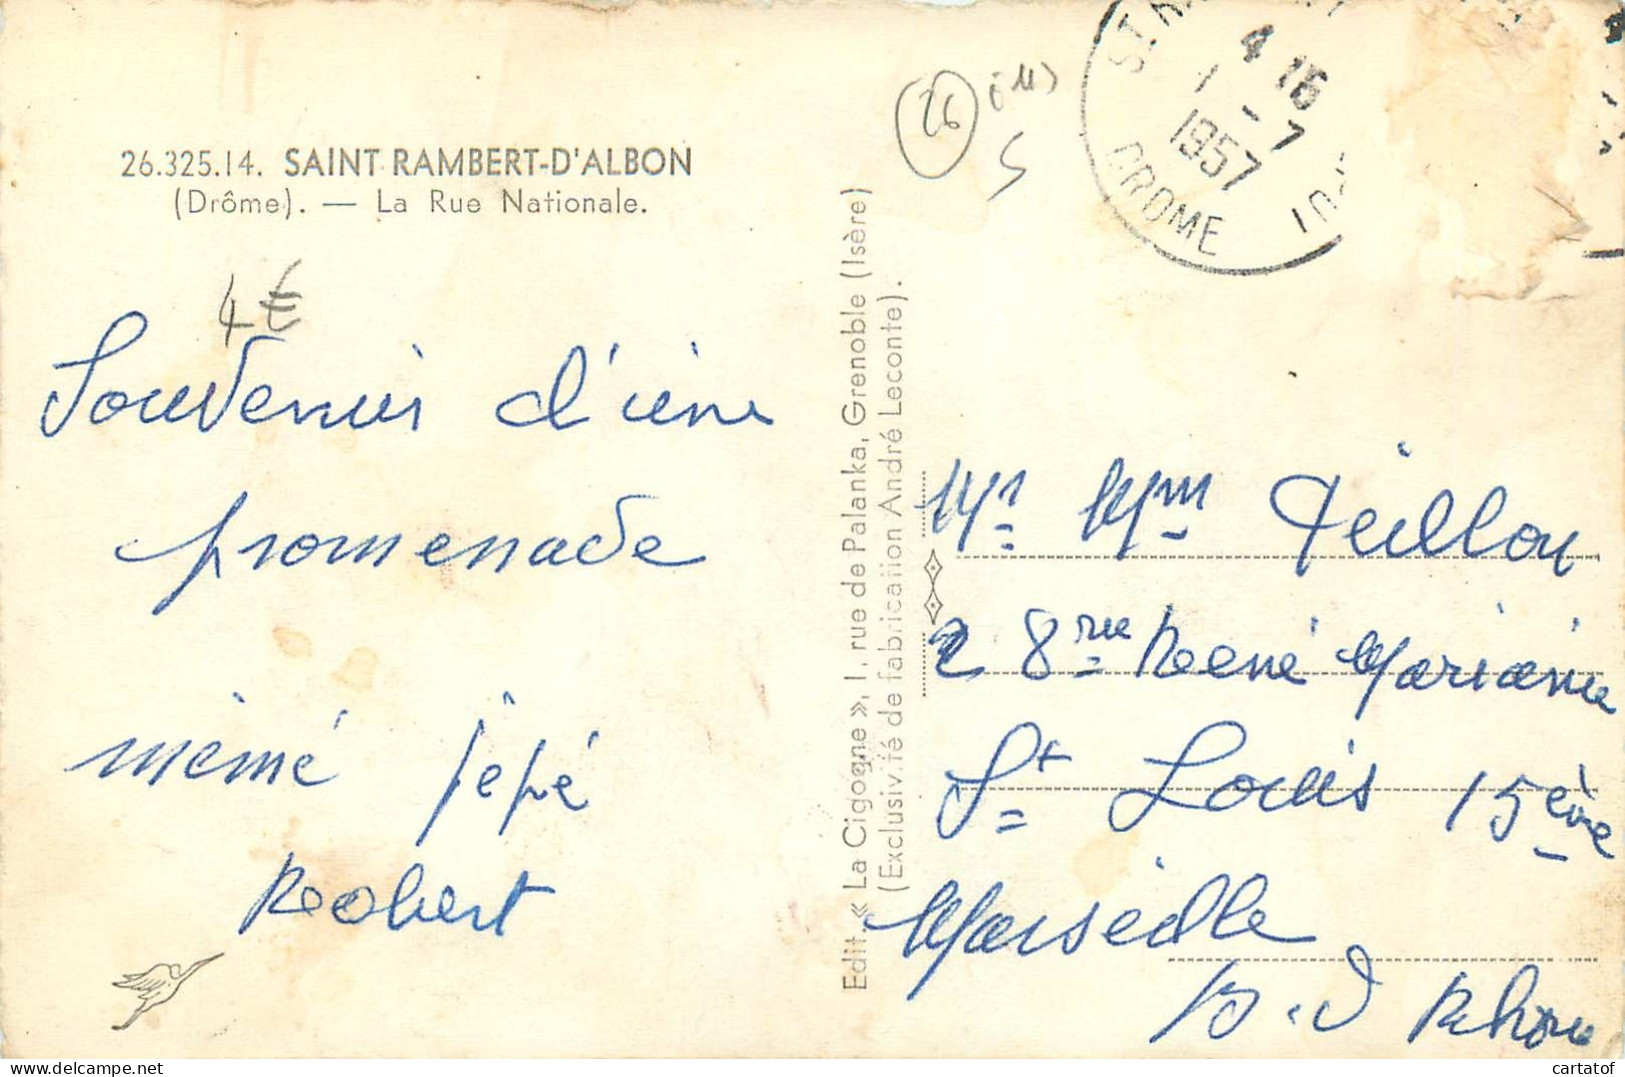 26.325.14. SAINT RAMBERT-D'ALBON
(Drôme). — La Rue Nationale.
4€
Souvenir d'une
promenade
mémé pépé
Robert
Edit. « La Cigogne », 1, rue de Palanka, Grenoble (Isère)
(Exclusivité de fabrication André Leconte).
26
5
4 16
1 - 7
1957
DROME
Mr Mm Teillon
28 rue René Mariani
St Louis 15ème
Marseille
B. d Rhône
delcampe.net
cartatof